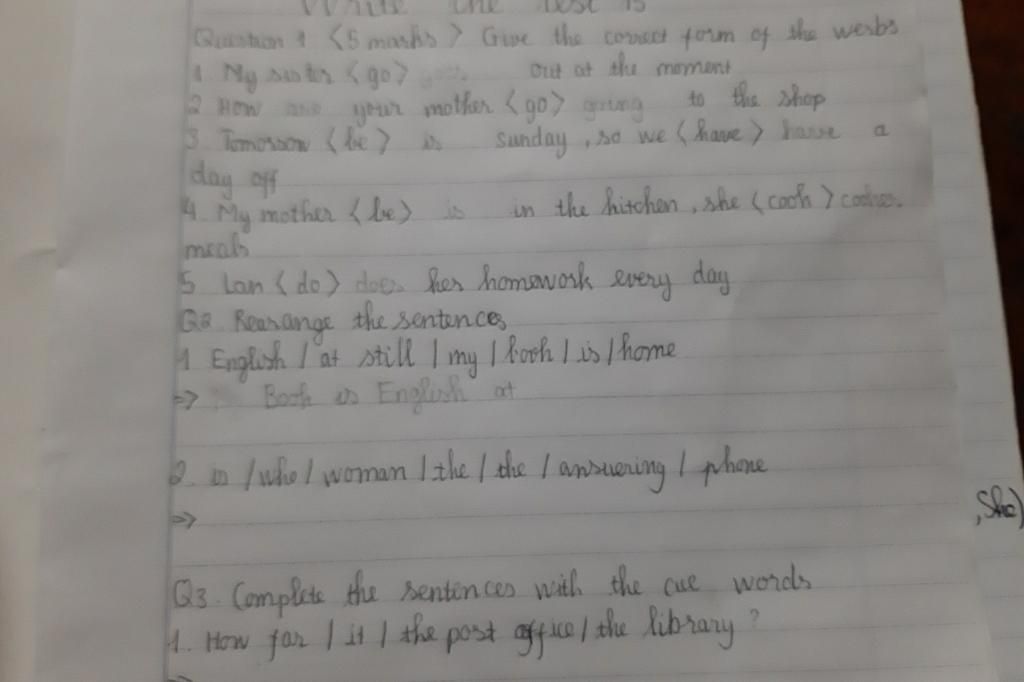 Write the test is
Question 1 <5 marks> Give the correct form of the werbs
1. My sister <go> out at the moment
2 How are your mother <go> going to the shop
3. Tomorrow <be> is sunday, so we <have> have a
day off
4. My mother <be> is in the kitchen, she <cook> cookes
meals
5. Lan <do> does her homework every day
Q2 Rearange the sentences
1 English / at still / my / book / is / home
=> Book is English at
2. is / who / woman / the / the / answering / phone
=>
, She)
Q3. Complete the sentences with the cue words
1. How far / it / the post office / the library ?